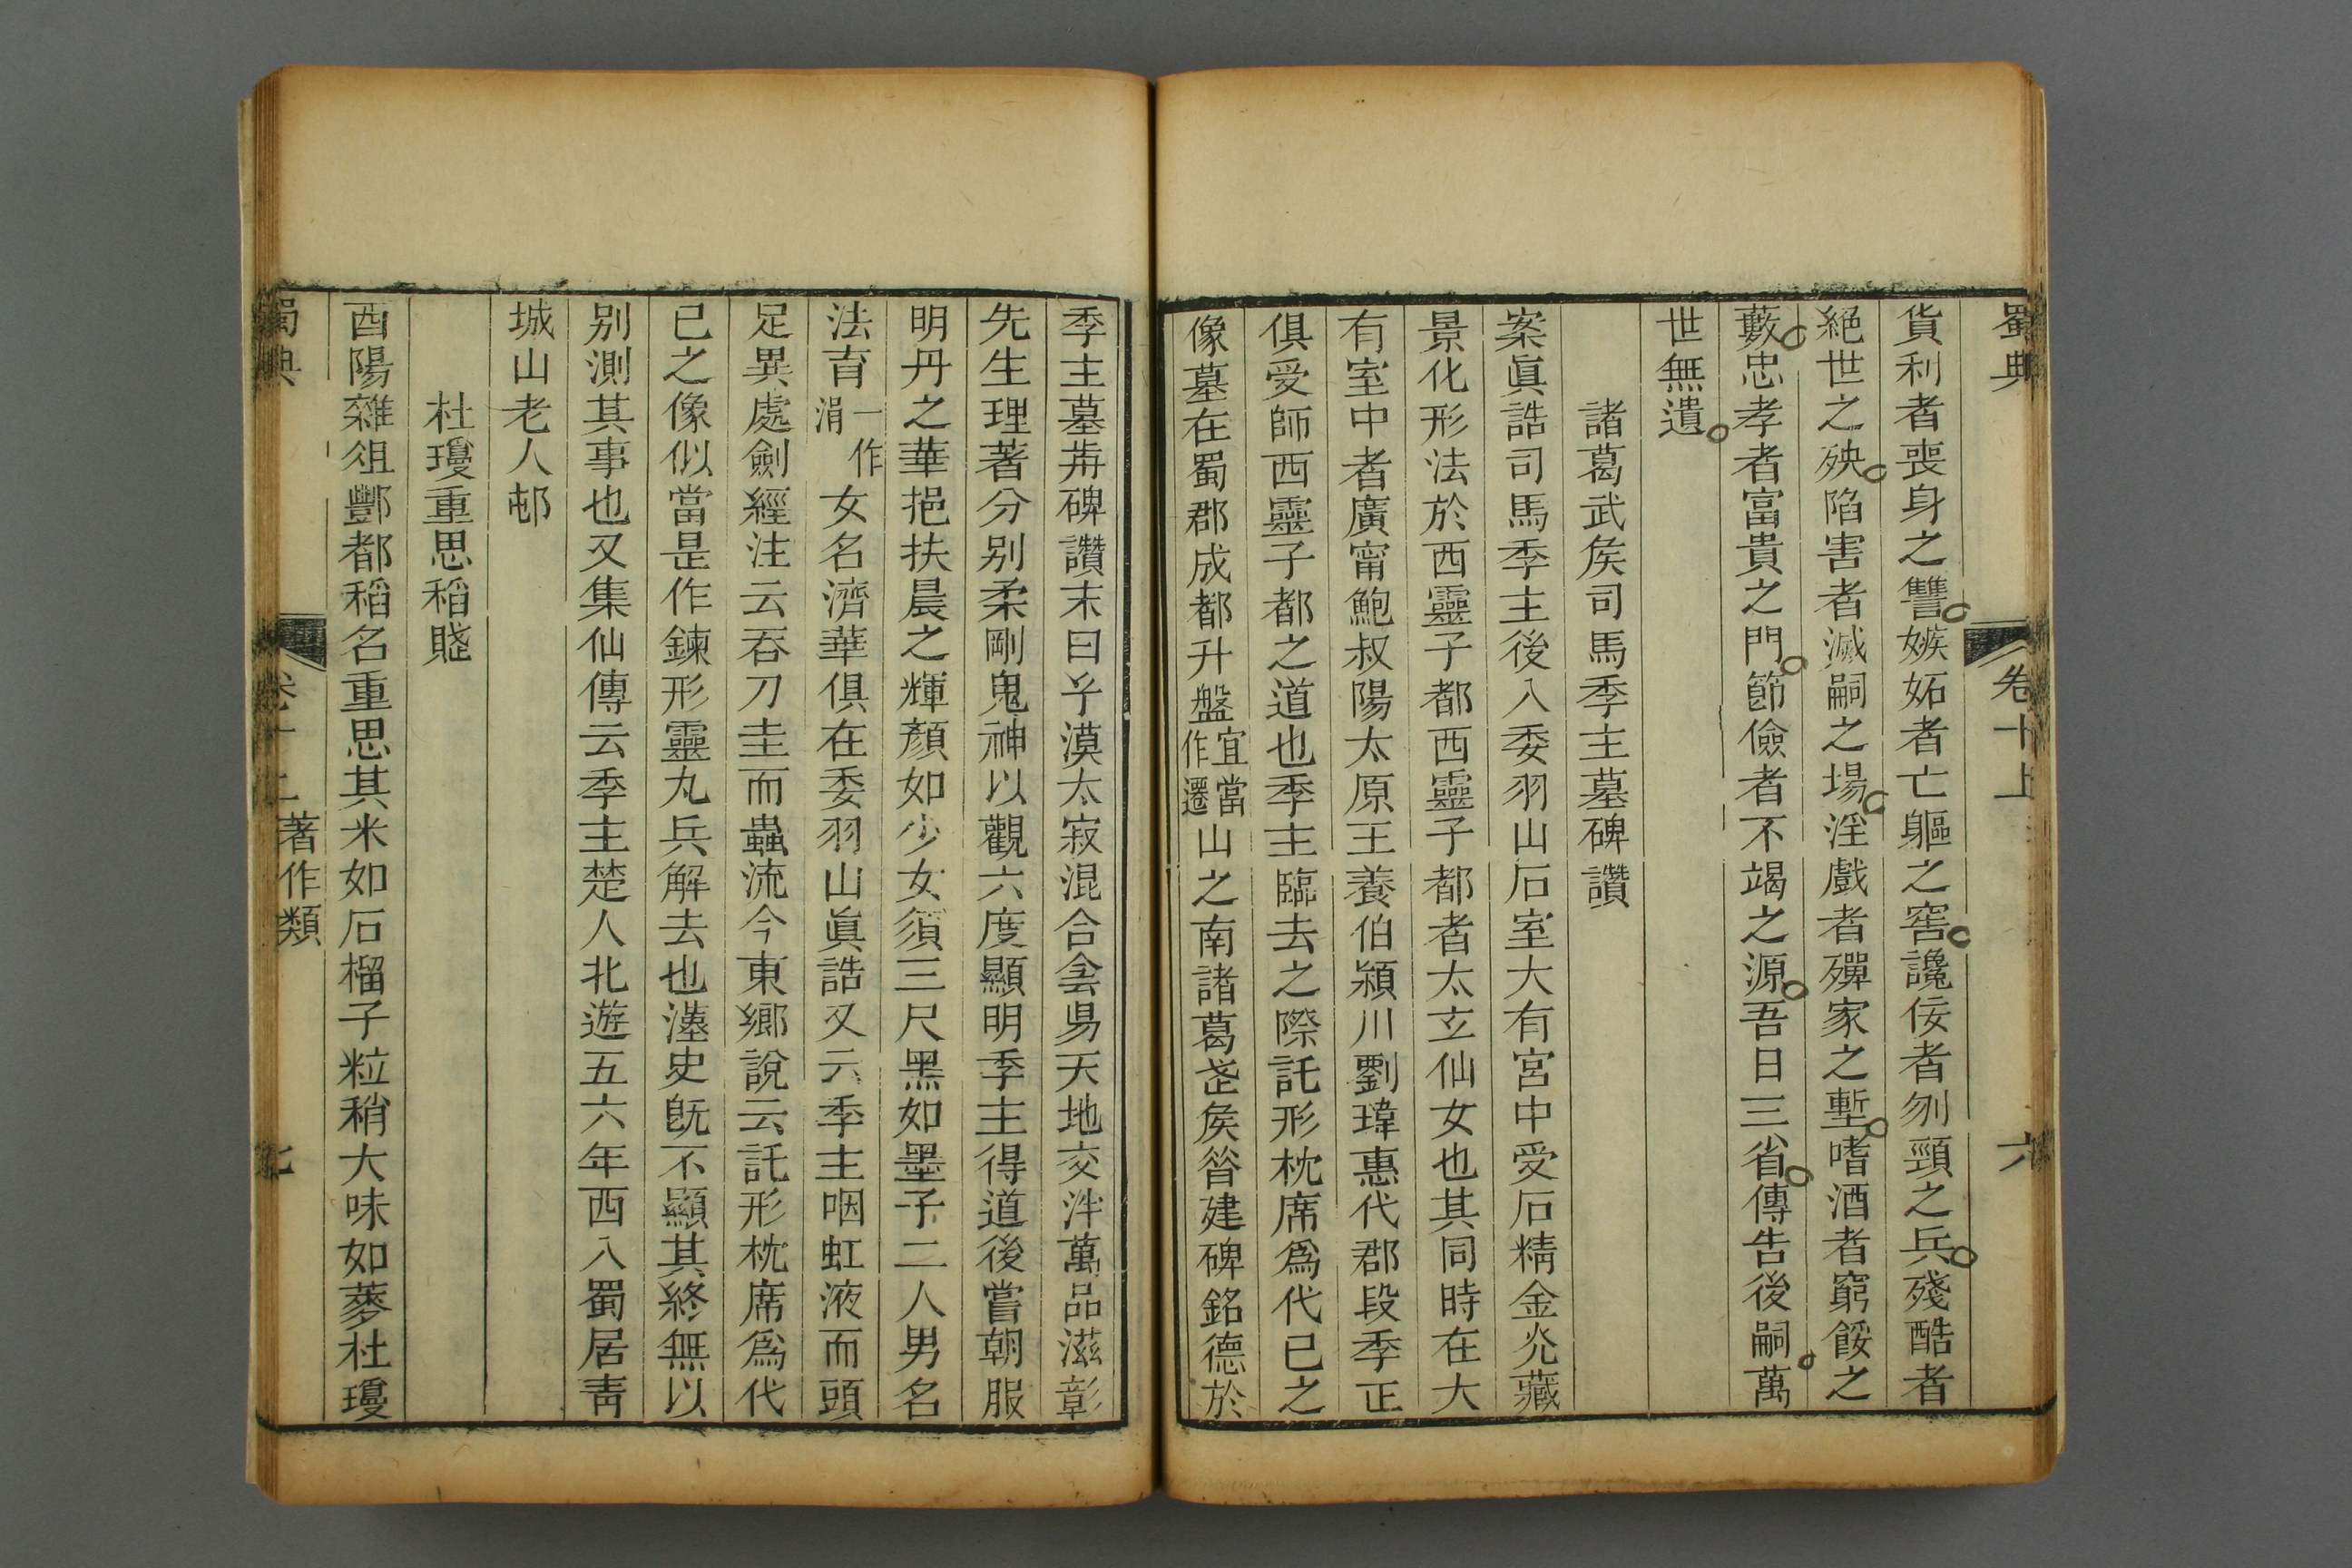 蜀典 卷十上 六
貨利者喪身之讐嫉妬者亡軀之窖讒佞者刎頸之兵殘酷者
絕世之殃陷害者滅嗣之場淫戲者殫家之塹嗜酒者窮餒之
藪忠孝者富貴之門節儉者不竭之源吾日三省傳告後嗣萬
世無遺
諸葛武矦司馬季主墓碑讚
案眞誥司馬季主後入委羽山石室大有宮中受石精金炗藏
景化形法於西靈子都西靈子都者太玄仙女也其同時在大
有室中者廣甯鮑叔陽太原王養伯潁川劉瑋惠代郡段季正
俱受師西靈子都之道也季主臨去之際託形枕席爲代已之
像墓在蜀郡成都升盤宜當作遷山之南諸葛武矦昝建碑銘德於
季主墓歬碑讚末曰兮漠太寂混合侌昜天地交泮萬品滋彰
先生理著分别柔剛鬼神以觀六度顯明季主得道後嘗朝服
明丹之華挹扶晨之輝顏如少女須三尺黑如墨子二人男名
法育一作涓女名濟華俱在委羽山眞誥又云季主咽虹液而頭
足異處劍經注云吞刀圭而蟲流今東鄉說云託形枕席爲代
已之像似當是作鍊形靈丸兵解去也漢史旣不顯其終無以
别測其事也又集仙傳云季主楚人北遊五六年西入蜀居靑
城山老人邨
杜瓊重思稻賤
酉陽雜俎酆都稻名重思其米如石榴子粒稍大味如蔆杜瓊
蜀典 卷十上 著作類 七